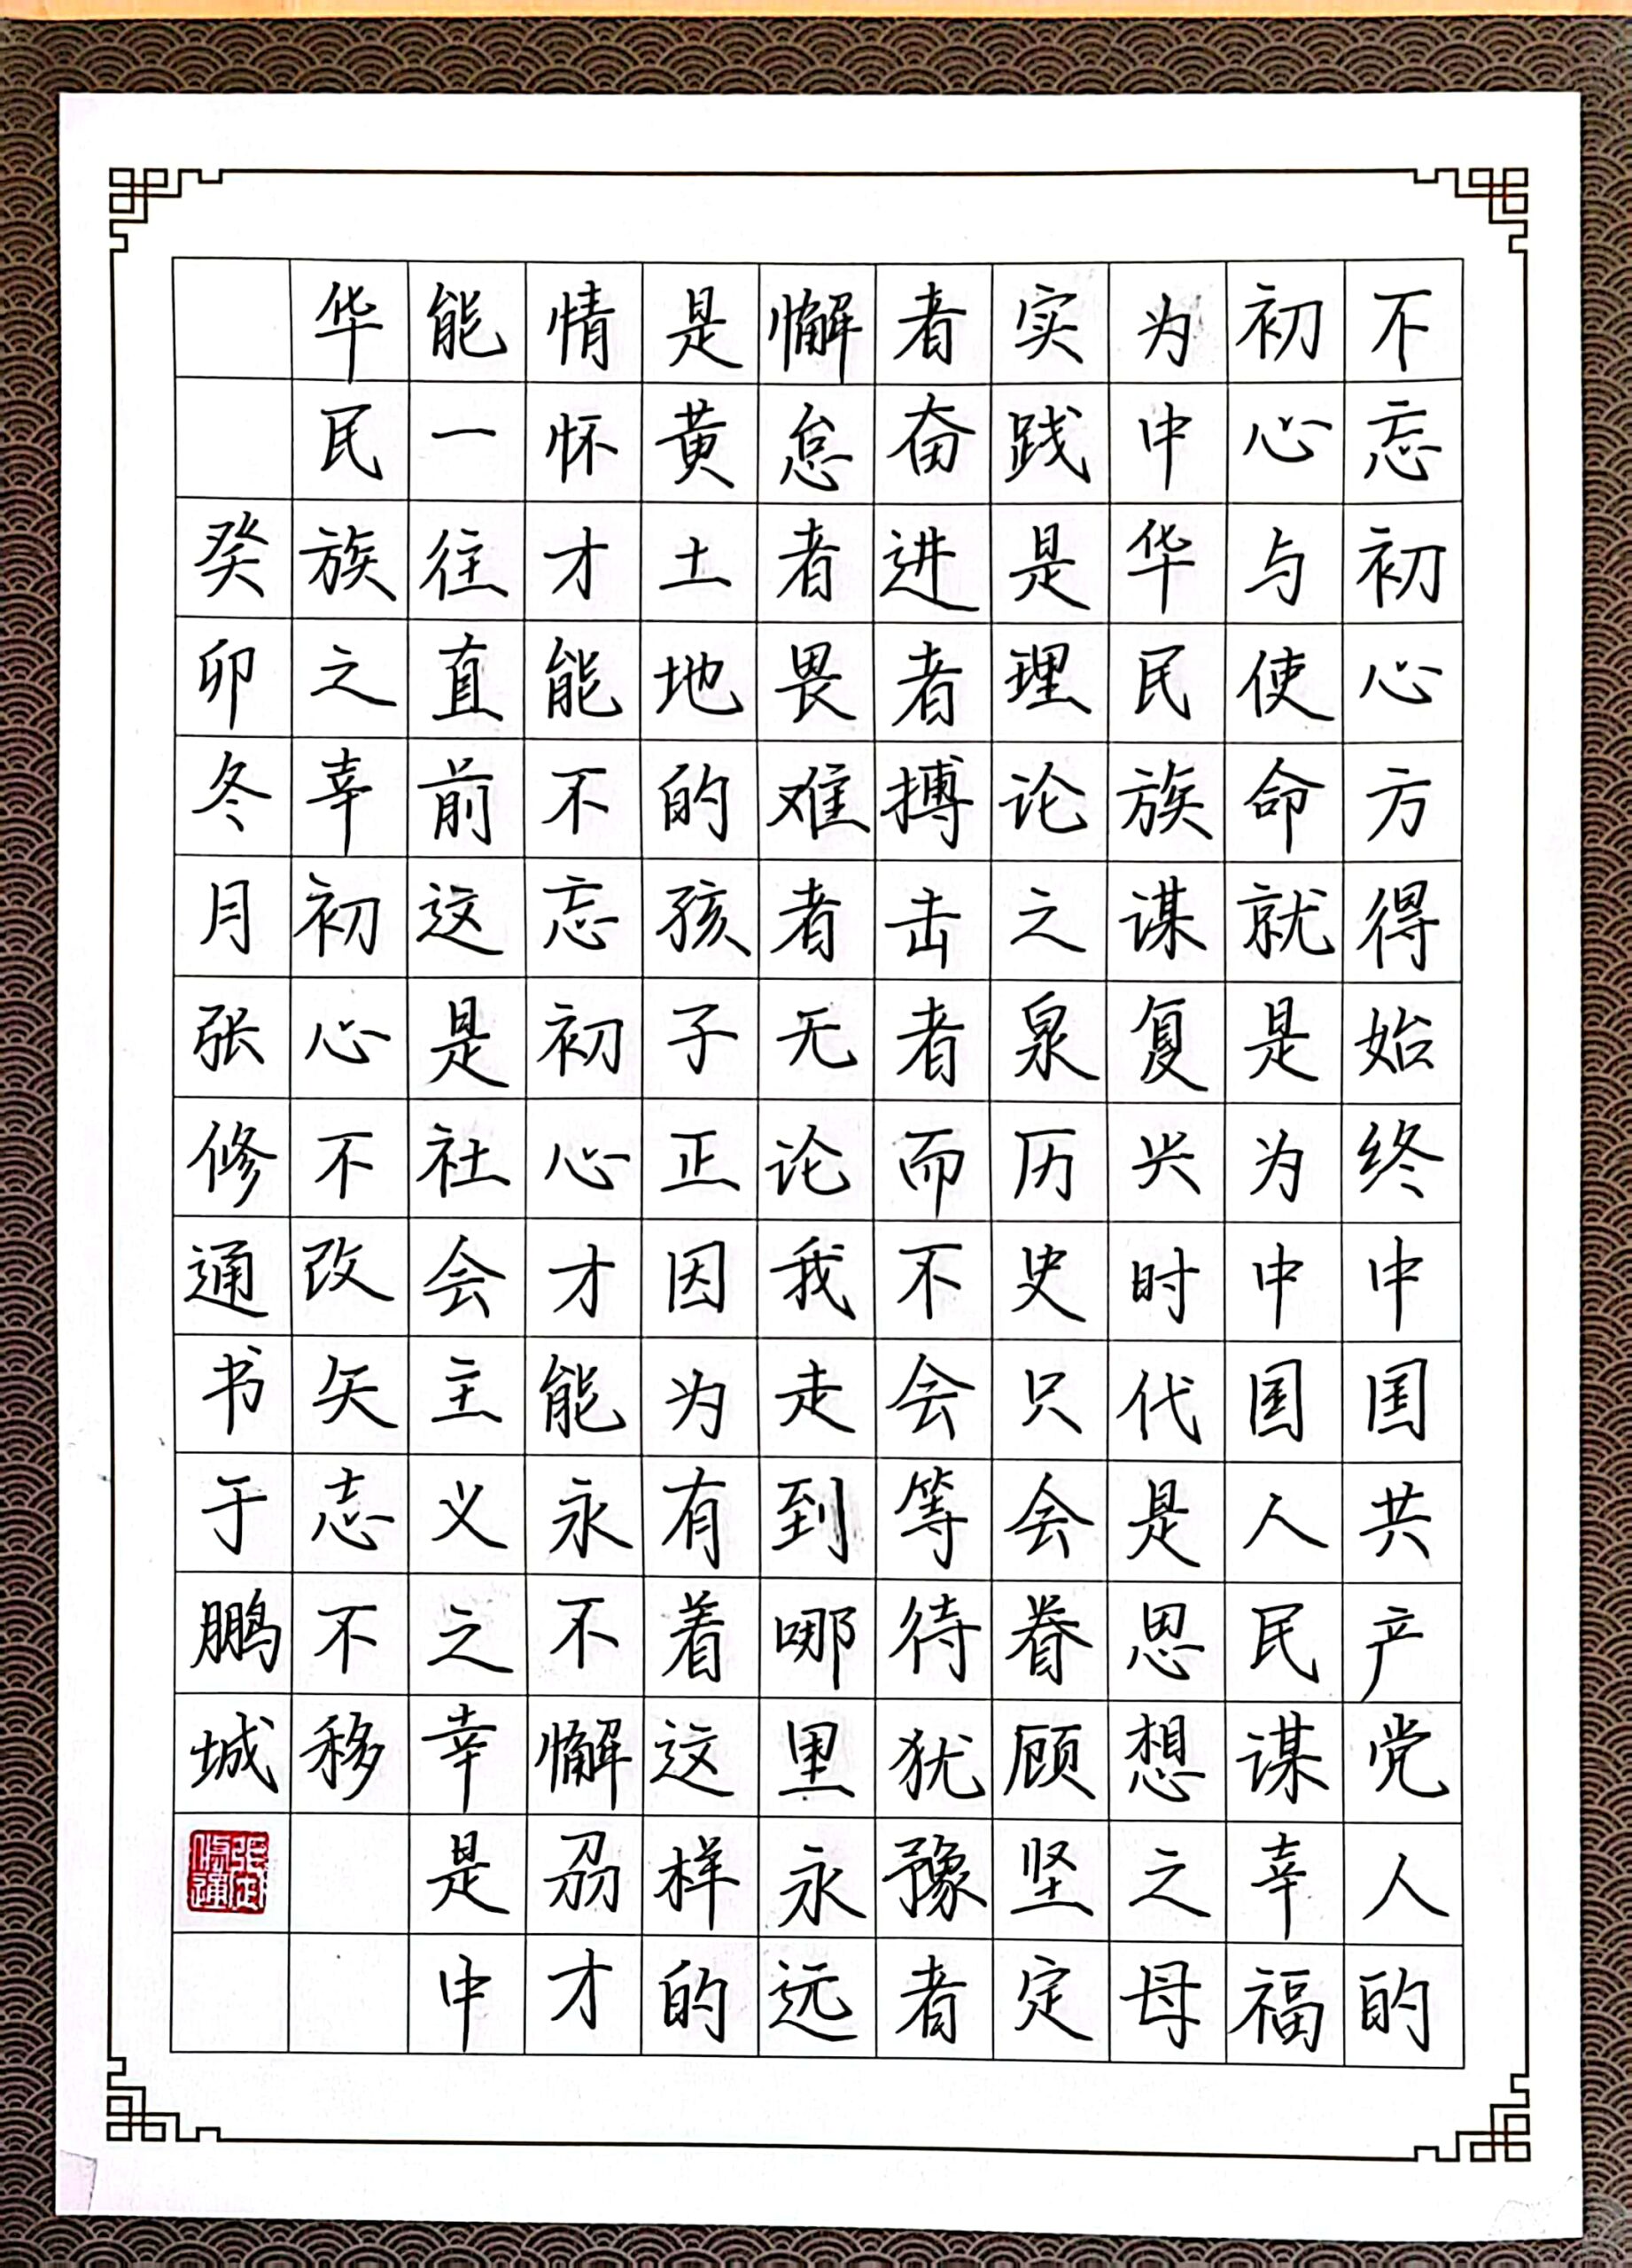 不忘初心方得始终中国共产党人的
初心与使命就是为中国人民谋幸福
为中华民族谋复兴时代是思想之母
实践是理论之泉历史只会眷顾坚定
者奋进者搏击者而不会等待犹豫者
懈怠者畏难者无论我走到哪里永远
是黄土地的孩子正因为有着这样的
情怀才能不忘初心才能永不懈才
能一往直前这是社会主义之幸是中
华民族之幸初心不改矢志不移
癸卯冬月张修通书于鹏城